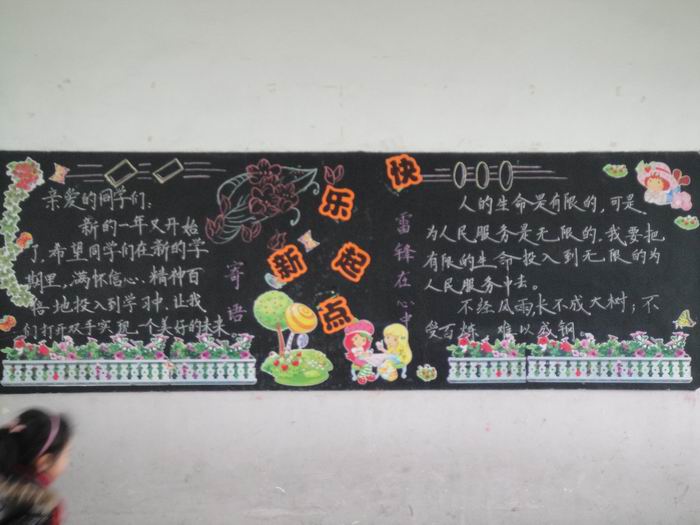 亲爱的同学们:
新的一年又开始
了,希望同学们在新的学
期里,满怀信心、精神百
倍地投入到学习中,让我
们打开双手实现一个美好的未来。
寄语
快乐
新起点
雷锋在心中
人的生命是有限的,可是,
为人民服务是无限的,我要把
有限的生命投入到无限的为
人民服务中去。
不经风雨,长不成大树;不
受百炼,难以成钢。